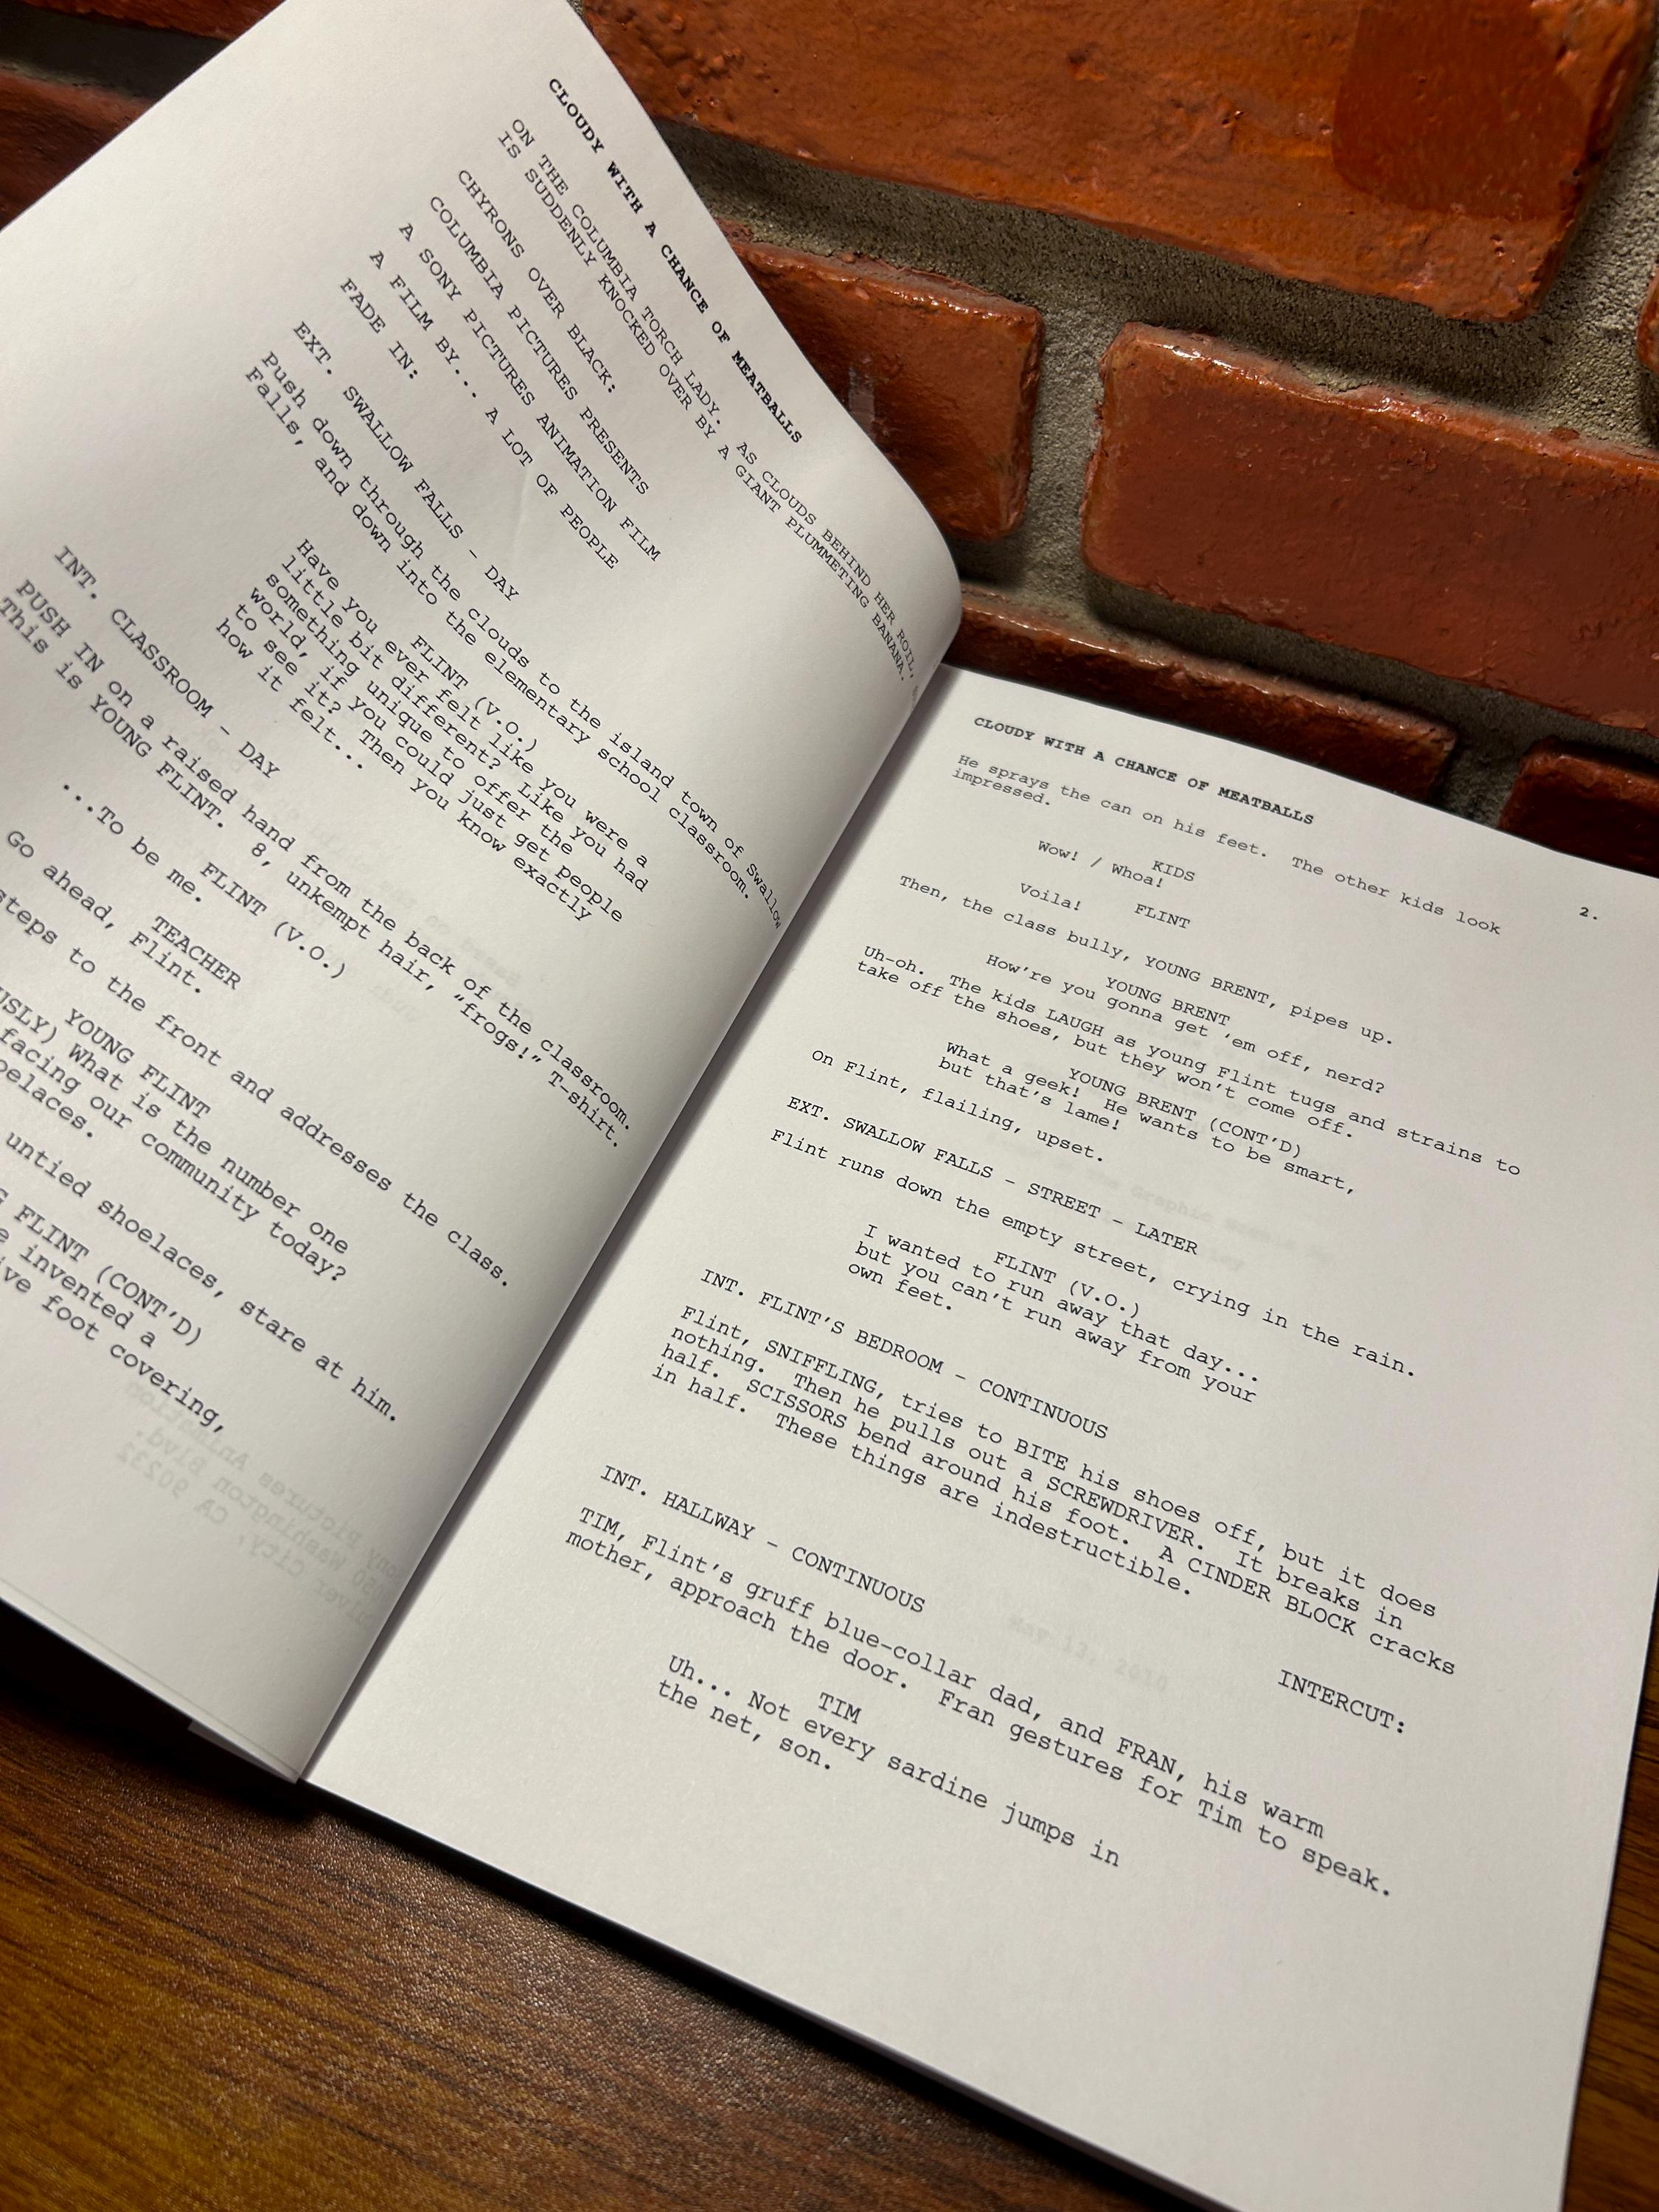 CLOUDY WITH A CHANCE OF MEATBALLS
ON THE COLUMBIA TORCH LADY. AS CLOUDS BEHIND HER ROIL,
IS SUDDENLY KNOCKED OVER BY A GIANT PLUMMETING BANANA.
CHYRONS OVER BLACK:
COLUMBIA PICTURES PRESENTS
A SONY PICTURES ANIMATION FILM
A FILM BY... A LOT OF PEOPLE
FADE IN:
EXT. SWALLOW FALLS - DAY
Push down through the clouds to the island town of Swallow
Falls, and down into the elementary school classroom.
FLINT (V.O.)
Have you ever felt like you were a
little bit different? Like you had
something unique to offer the
world, if you could just get people
to see it? Then you know exactly
how it felt...
INT. CLASSROOM - DAY
PUSH IN on a raised hand from the back of the classroom.
This is YOUNG FLINT. 8, unkempt hair, "frogs!" T-shirt.
FLINT (V.O.)
...To be me.
TEACHER
Go ahead, Flint.
steps to the front and addresses the class.
YOUNG FLINT
What is the number one
facing our community today?
untied shoelaces, stare at him.
FLINT (CONT'D)
invented a
foot covering,
CLOUDY WITH A CHANCE OF MEATBALLS
2.
He sprays the can on his feet. The other kids look
impressed.
KIDS
Wow! / Whoa!
FLINT
Voila!
Then, the class bully, YOUNG BRENT, pipes up.
YOUNG BRENT
How're you gonna get 'em off, nerd?
Uh-oh. The kids LAUGH as young Flint tugs and strains to
take off the shoes, but they won't come off.
YOUNG BRENT (CONT'D)
What a geek! He wants to be smart,
but that's lame!
On Flint, flailing, upset.
EXT. SWALLOW FALLS - STREET - LATER
Flint runs down the empty street, crying in the rain.
FLINT (V.O.)
I wanted to run away that day...
but you can't run away from your
own feet.
INT. FLINT'S BEDROOM - CONTINUOUS
Flint, SNIFFLING, tries to BITE his shoes off, but it does
nothing. Then he pulls out a SCREWDRIVER. It breaks in
half. SCISSORS bend around his foot. A CINDER BLOCK cracks
in half. These things are indestructible.
INTERCUT:
INT. HALLWAY - CONTINUOUS
TIM, Flint's gruff blue-collar dad, and FRAN, his warm
mother, approach the door. Fran gestures for Tim to speak.
TIM
Uh... Not every sardine jumps in
the net, son.